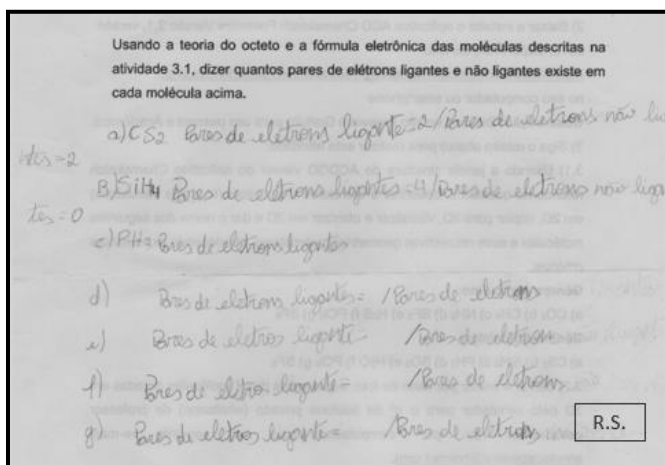 Usando a teoria do octeto e a fórmula eletrônica das moléculas descritas na
atividade 3.1, dizer quantos pares de elétrons ligantes e não ligantes existe em
cada molécula acima.
a) CS2 Pares de elétrons ligante=2/Pares de eletrons não li
ntes=2
B) SiH4 Pares de elétrons ligantes=4/Pares de electrons não liga
tes=0
c) PH3 Pares de eletrons ligantes
d) Pares de eletrons ligantes= /Pares de eletrons
e) Pares de eletros ligante /Pares de eletron
f) Pares de eletros ligante= /Pares de eletrons
g) Pares de eletros ligante= /Pares de eletrons
R.S.